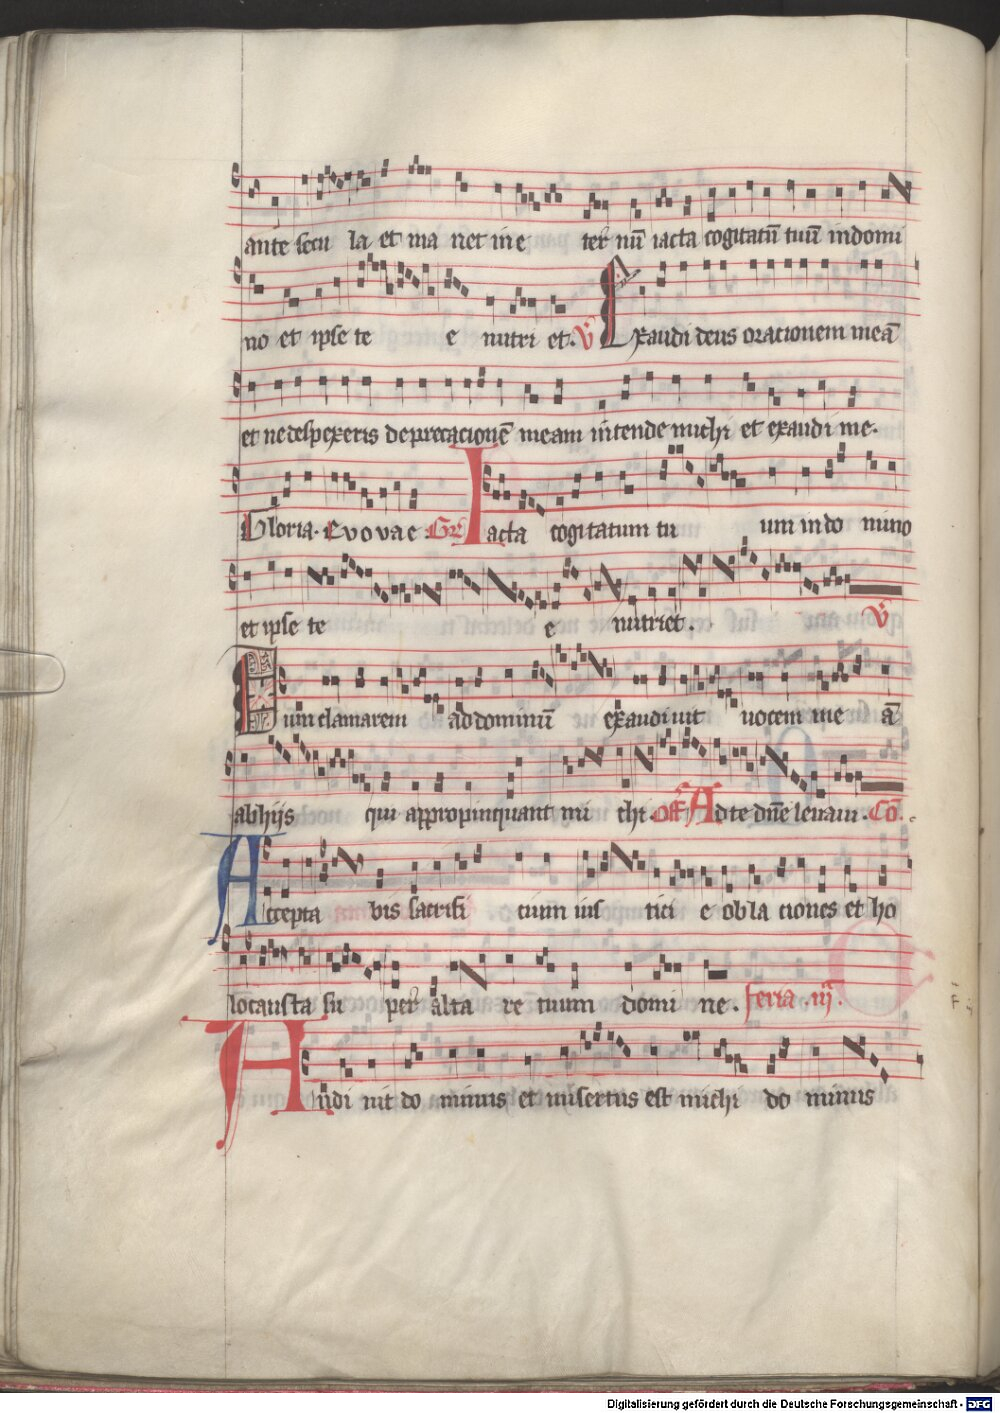 ante secu la et ma net in e ter nū iacta cogitatū tuū in domi
no et ipse te e nutri et. V Exaudi deus orationem meā
et ne despexeris deprecacionē meam intende michi et exaudi me.
Gloria. Evovae Gr Iacta cogitatum tu um in do mino
et ipse te e nutriet. V
Dum clamarem ad dominū exaudi uit uocem me ā
ab hijs qui appropinquant mi chi. Off Ad te dn̄e leuaui. Cō.
Accepta bis sacrifi cium ius tici e obla ciones et ho
locausta su per alta re tuum domi ne. feria iij.
Audi uit do minus et misertus est michi do minus
Digitalisierung gefördert durch die Deutsche Forschungsgemeinschaft - DFG